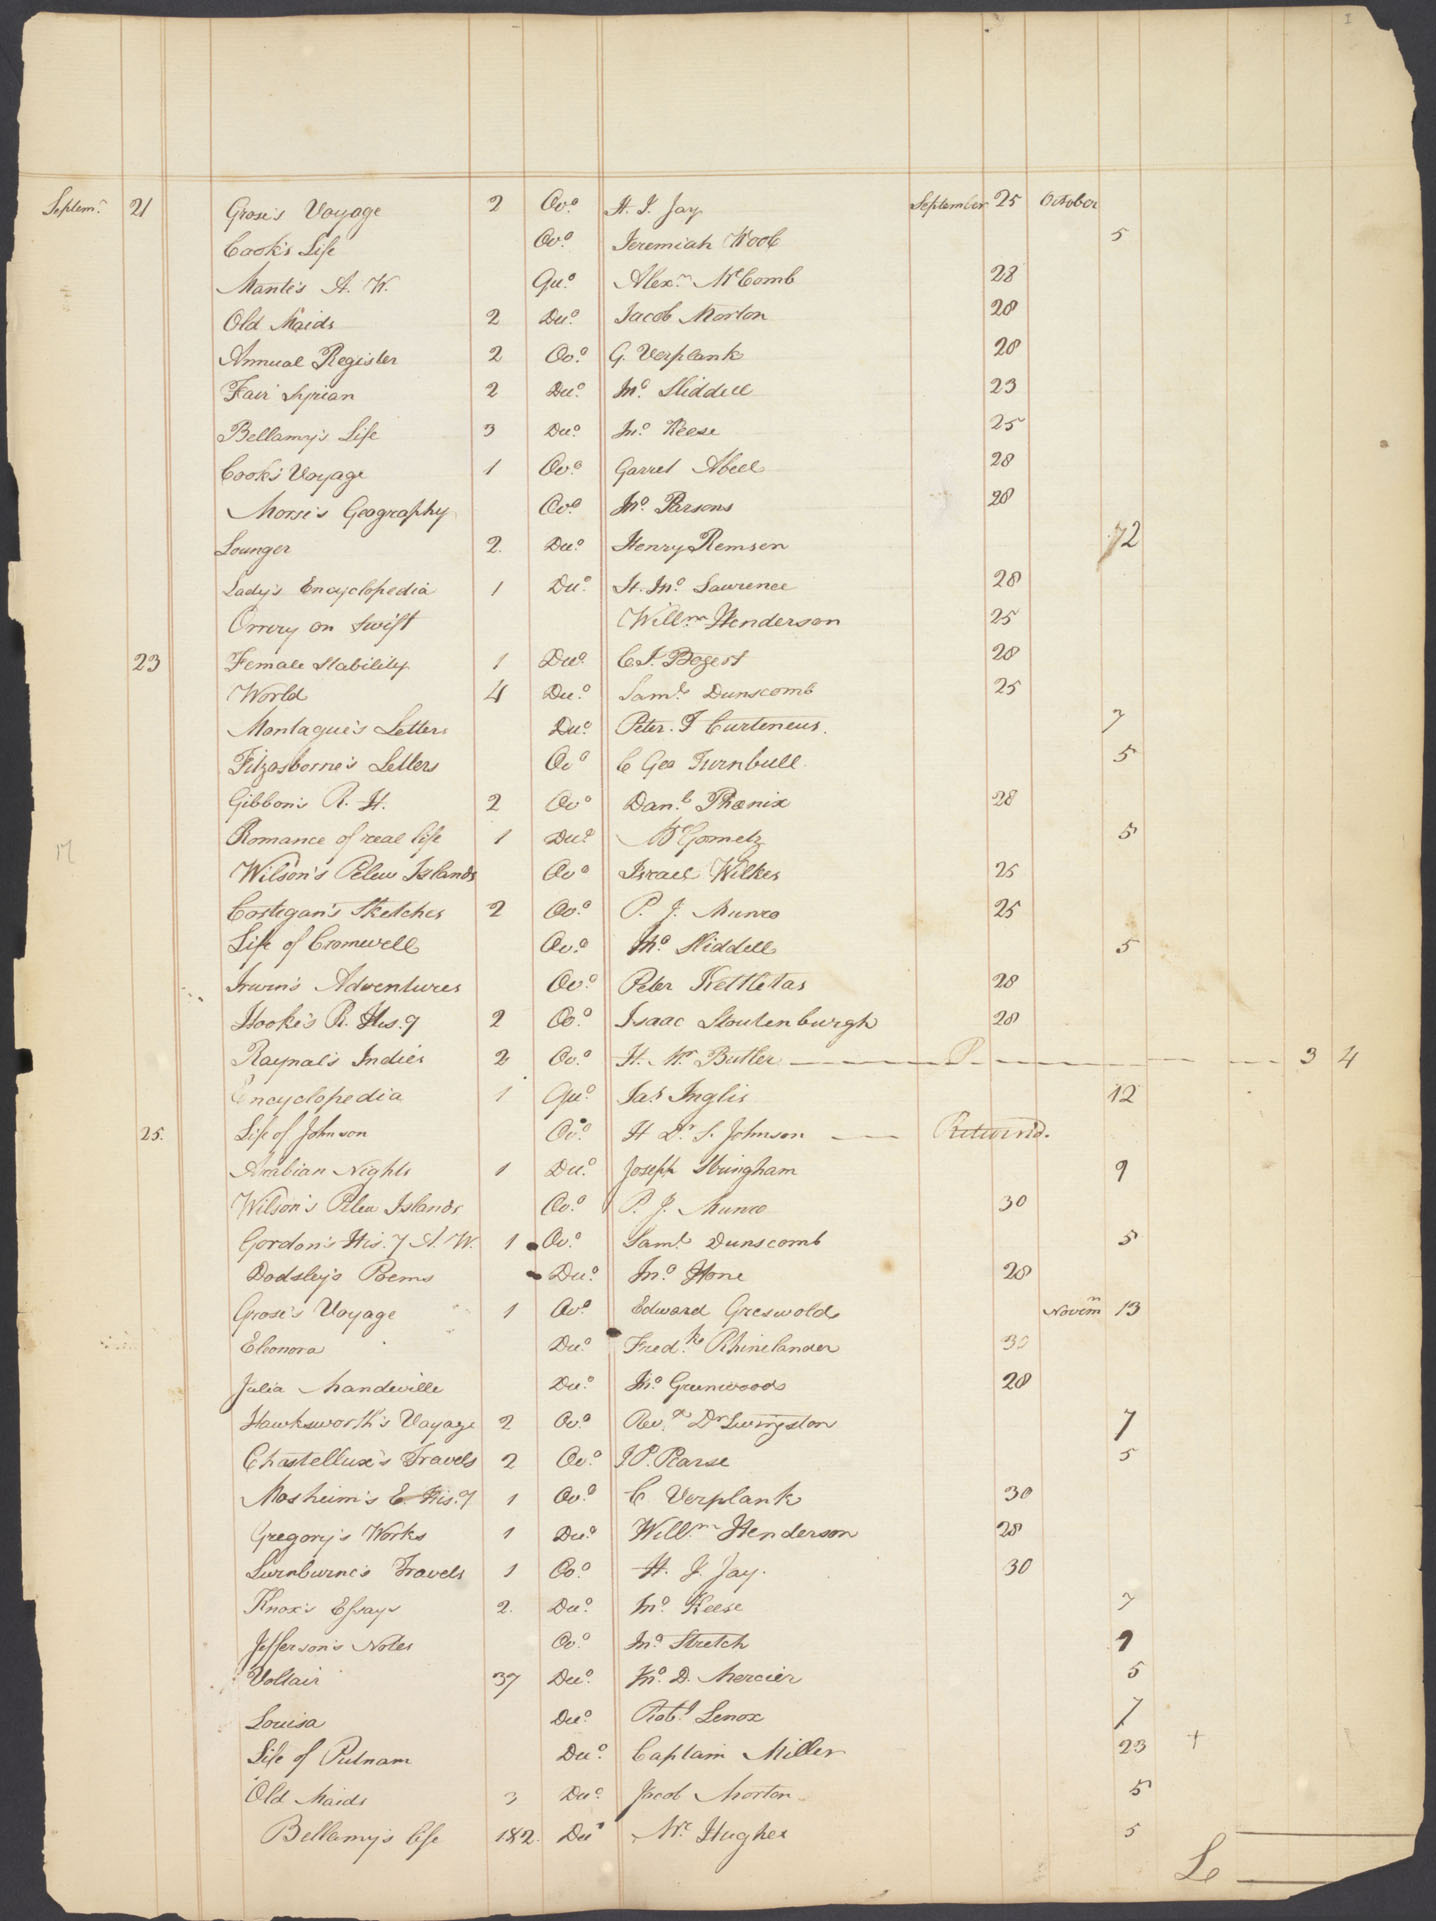 1
Septemr 21 Grose's Voyage 2 Ovo H. I. Jay September 25 October
Cook's Life Ovo Jeremiah Wool 5
Mante's A. W. Quo Alexr McComb 28
Old Maids 2 Duo Jacob Morton 28
Annual Register 2 Ovo G. Verplank 28
Fair Syrian 2 Duo Jno Sliddell 23
Bellamy's Life 3 Duo Jno Keese 25
Cook's Voyage 1 Ovo Garret Abeel 28
Morse's Geography Ovo Jno Parsons 28
Lounger 2 Duo Henry Remsen 12
Lady's Encyclopedia 1 Duo St. Jno Lawrence 28
Orrery on Swift Willm Henderson 25
23 Female Stability 1 Duo C. I. Bogert 28
World 4 Duo Saml Dunscomb 25
Montague's Letters Duo Peter. T Curteneus. 7
Fitzosborne's Letters Ovo C Geo Turnbull 5
Gibbon's R. H. 2 Ovo Danl Phœnix 28
Romance of real life 1 Duo M Gometz 5
Wilson's Pelew Islands Ovo Israel Wilkes 25
Costigan's Sketches 2 Ovo P. J. Munro 25
Life of Cromwell Ovo Jno Sliddell 5
Irwin's Adventures Ovo Peter Kettletas 28
Hooke's R. His.y 2 Ovo Isaac Stoutenburgh 28
Raynal's Indies 2 Ovo H. Mr Butler — P. — 3 4
Encyclopedia 1 Quo Jas Inglis 12
25. Life of Johnson Ovo H Dr S. Johnson — Returnd.
Arabian Nights 1 Duo Joseph Stringham 9
Wilson's Pelew Islands Ovo P. J. Munro 30
Gordon's His.y A. W. 1 Ovo Saml Dunscomb 5
Dodsley's Poems Duo Jno Hone 28
Grose's Voyage 1 Ovo Edward Greswold Novemr 13
Eleonora Duo Fredk Rhinelander 30
Julia Mandeville Duo Jno Greenwoods 28
Hawksworth's Voyage 2 Ovo Revd Dr Livingston 7
Chastellux's Travels 2 Ovo I P. Pearse 5
Mosheim's E. His.y 1 Ovo C Verplank 30
Gregory's Works 1 Duo Willm Henderson 28
Swinburne's Travels 1 Ovo H. J. Jay. 30
Knox's Essays 2. Duo Jno Keese 7
Jefferson's Notes Ovo Jno Stretch 9
Voltair 37 Duo Jno D. Mercier 5
Louisa Duo Robt Lenox 7
Life of Putnam Duo Captain Miller 23 +
Old Maids 3 Duo Jacob Morton 5
Bellamy's life 1&2. Duo Mr Hughes 5